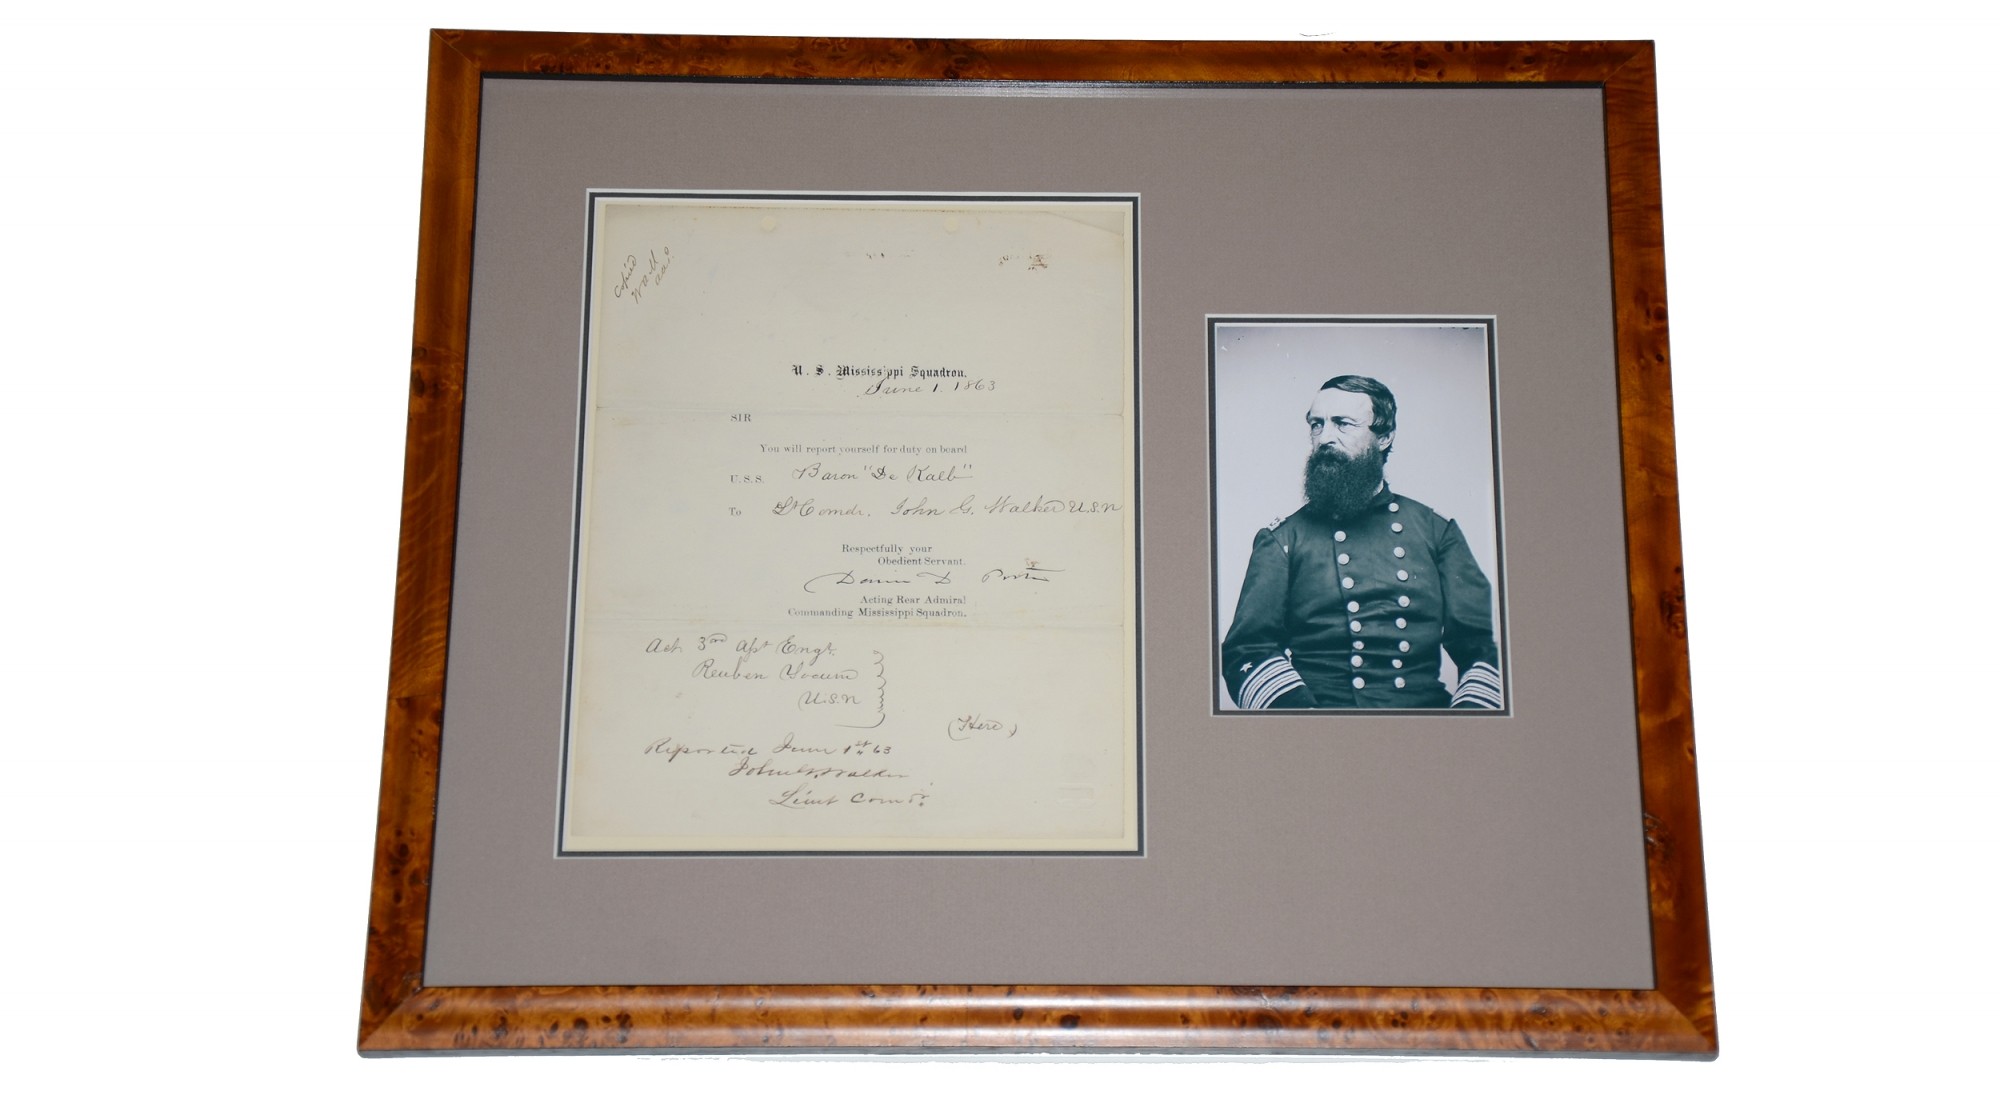 Copied
U. S. Mississippi Squadron.
June 1. 1863
SIR
You will report yourself for duty on board
U. S. S. Baron "De Kalb"
To Lt Comdr. John G. Walker U.S.N
Respectfully your
Obedient Servant.
David D Porter
Acting Rear Admiral
Commanding Mississippi Squadron.
Act 3rd Asst Engr.
Reuben Yocum
U.S.N
(Here)
Reported June 1st 63
John G. Walker
Lieut Comdr.